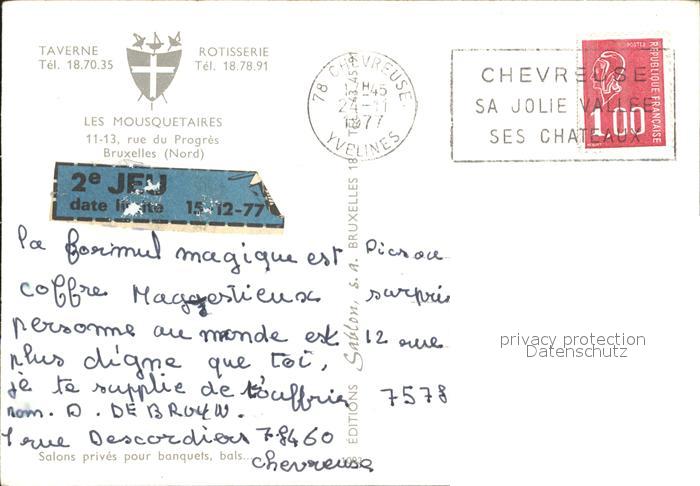 TAVERNE ROTISSERIE
Tél. 18.70.35 Tél. 18.78.91
LES MOUSQUETAIRES
11-13, rue du Progrès
Bruxelles (Nord)
78 CHEVREUSE
-45
1977
YVELINES
CHEVREUSE
SA JOLIE VALLEE
SES CHATEAUX
POSTES
REPUBLIQUE FRANÇAISE
1.00
2e JEU
date limite 15-12-77
la formul magique est
coffre Maggestieux
personne au monde est
plus digne que toi,
je te supplie de t'ouffrir
nom. D. DE BRUYN.
1 rue Descordiers 78460
chevreuse
Salons privés pour banquets, bals...
EDITIONS Sablon, s. A. BRUXELLES 18
Picsou
surpris
12 rue
7578
privacy protection
Datenschutz